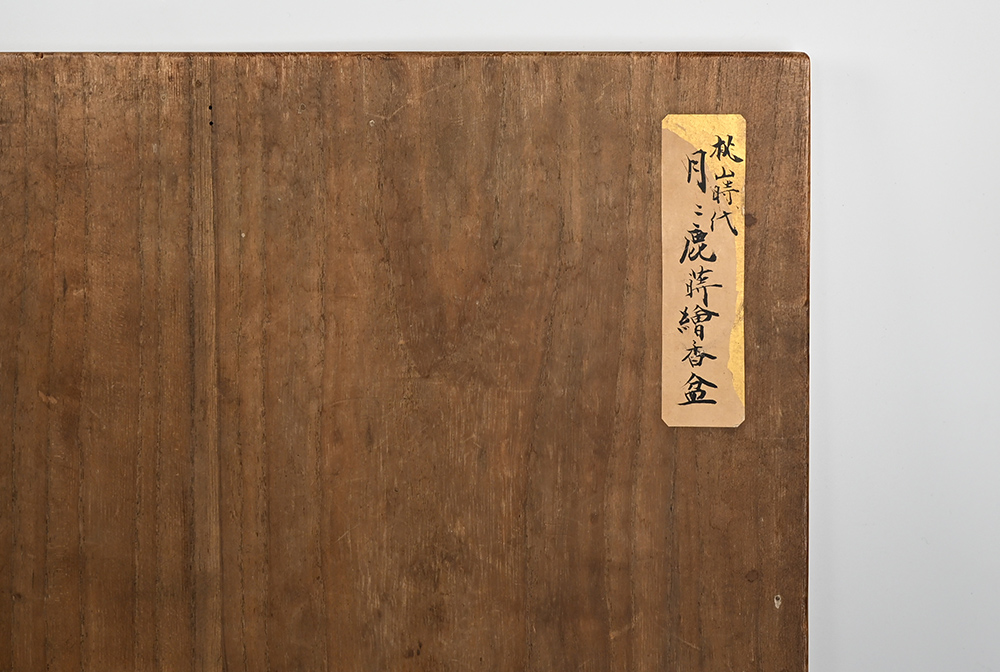 桃山時代
月ニ鹿蒔繪香盆